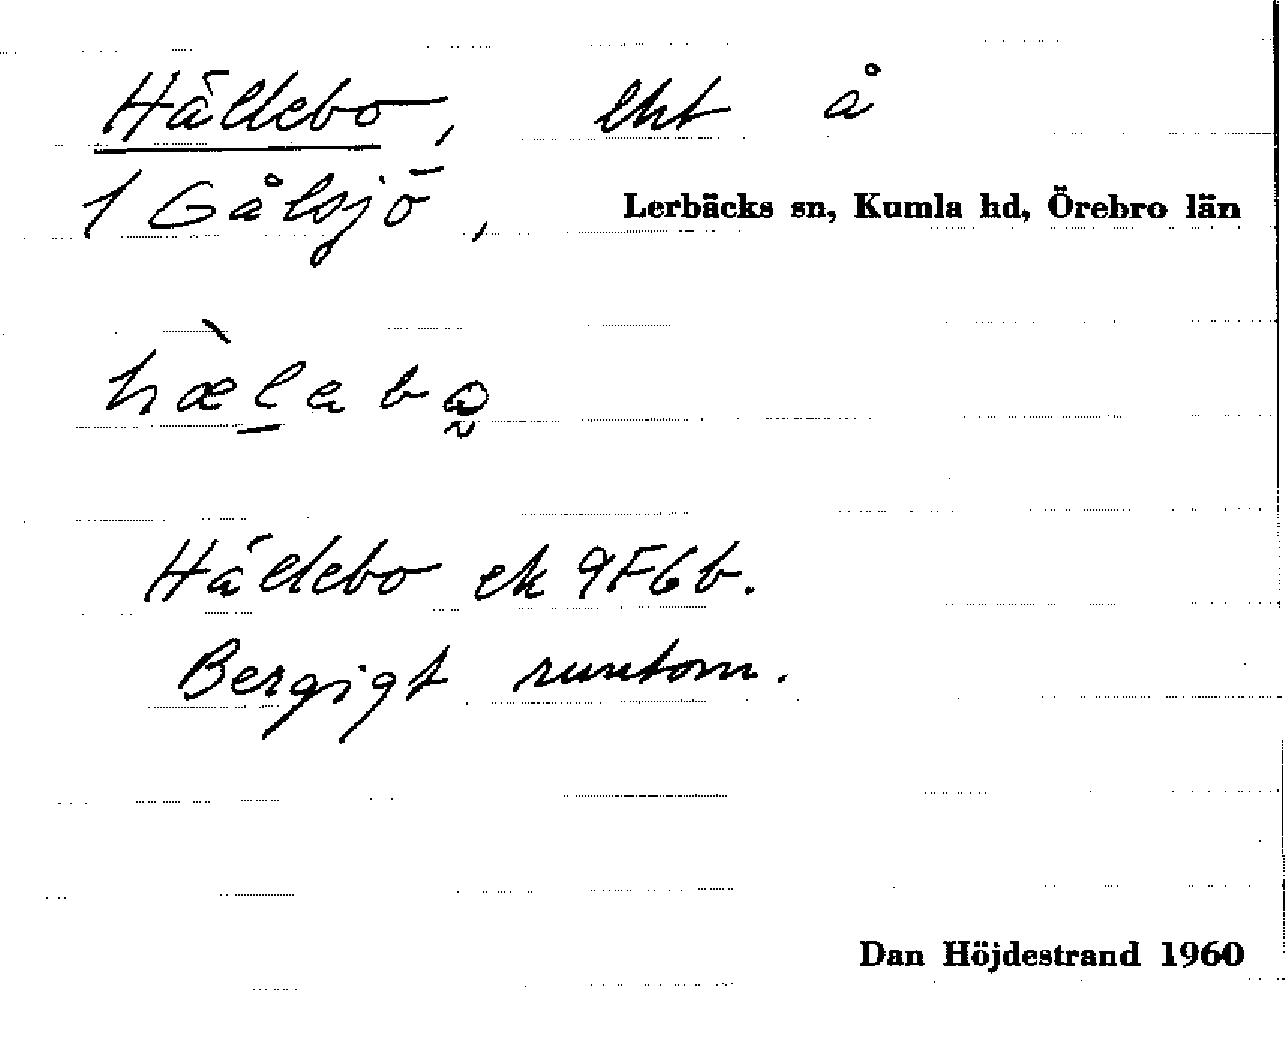 Hällebo, lht å
1 Gålsjö, Lerbäcks sn, Kumla hd, Örebro län
hæ̀l̲abo̰
Hällebo ek 9F6b.
Bergigt runtom.
Dan Höjdestrand 1960